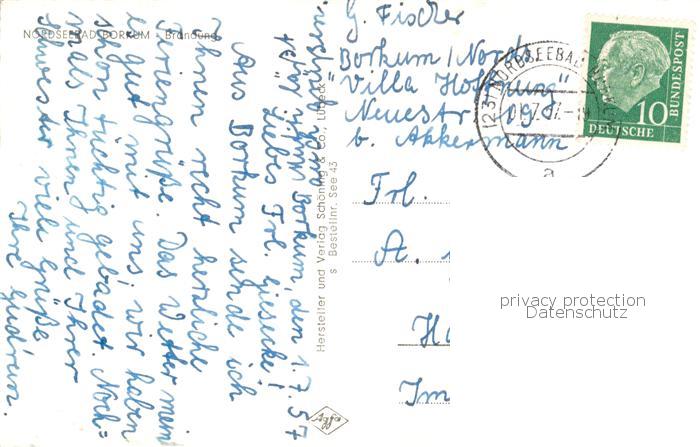 NORDSEEBAD BORKUM - Brandung
G. Fischer
Borkum / Nords
"Villa Hoffnung"
Neuestr 19
b. Akkermann
(23) NORDSEEBAD
.7.57.-18
a
10
DEUTSCHE
BUNDESPOST
Frl.
A.
Ha
Im
privacy protection
Datenschutz
Hersteller und Verlag Schöning & Co., Lübeck
s Bestellnr. See 43
Agfa
Borkum, den 1.7.57
Liebes Frl. Giesecke!
Aus Borkum sende ich
Ihnen recht herzliche
Feriengrüße. Das Wetter mein
t gut mit uns, wir haben
schon tüchtig gebadet. Noch=
mals Ihnen und Ihrer
Schwester viele Grüße
Ihre Gudrun.